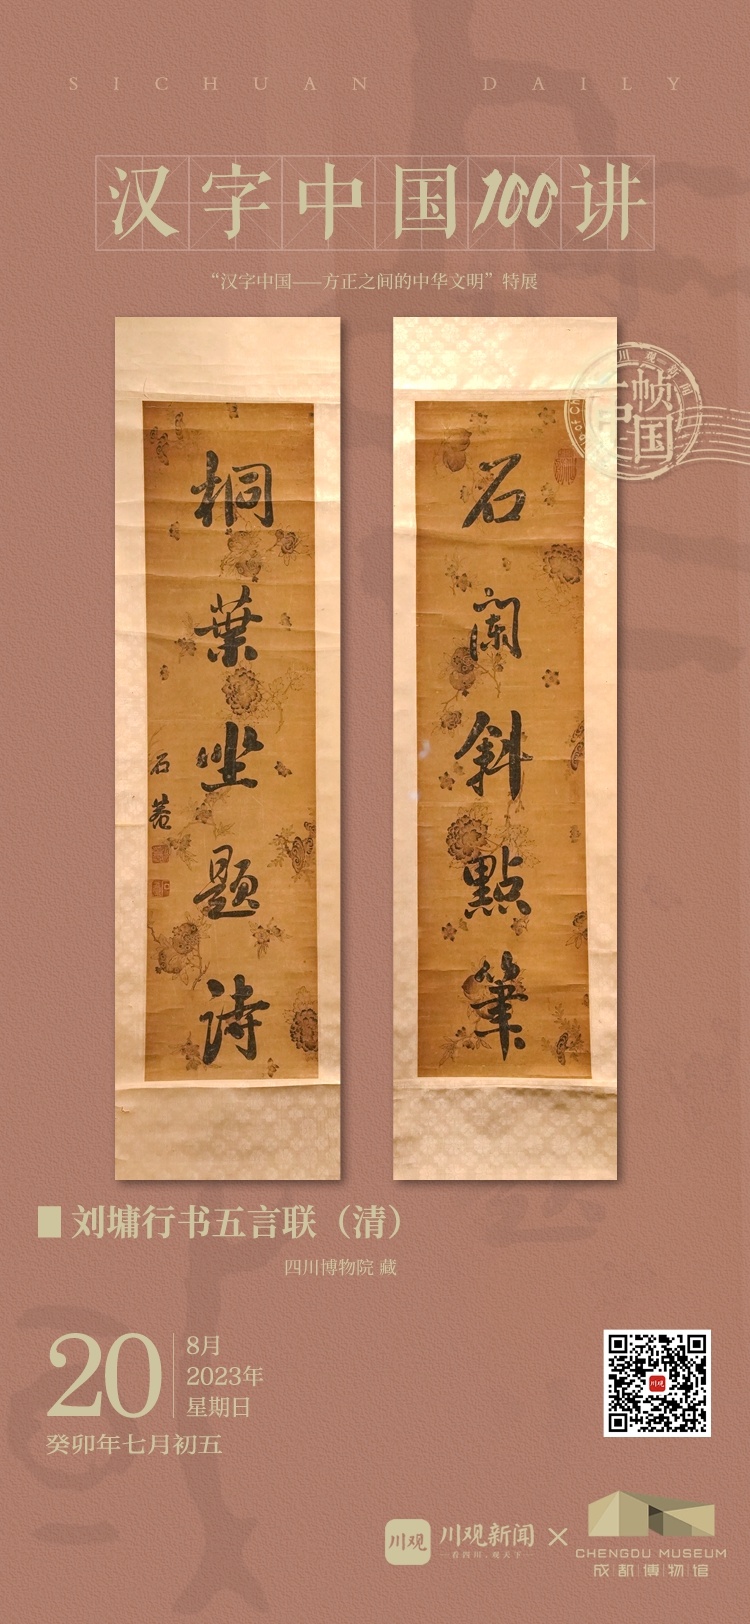 SICHUAN DAILY
汉字中国100讲
“汉字中国——方正之间的中华文明”特展
川观新闻
一帧中国
石阑斜點筆
桐葉坐题詩
石菴
刘墉行书五言联（清）
四川博物院 藏
20
8月
2023年
星期日
癸卯年七月初五
川观
川观新闻
—看四川、观天下—
×
CHENGDU MUSEUM
成都博物馆
川观